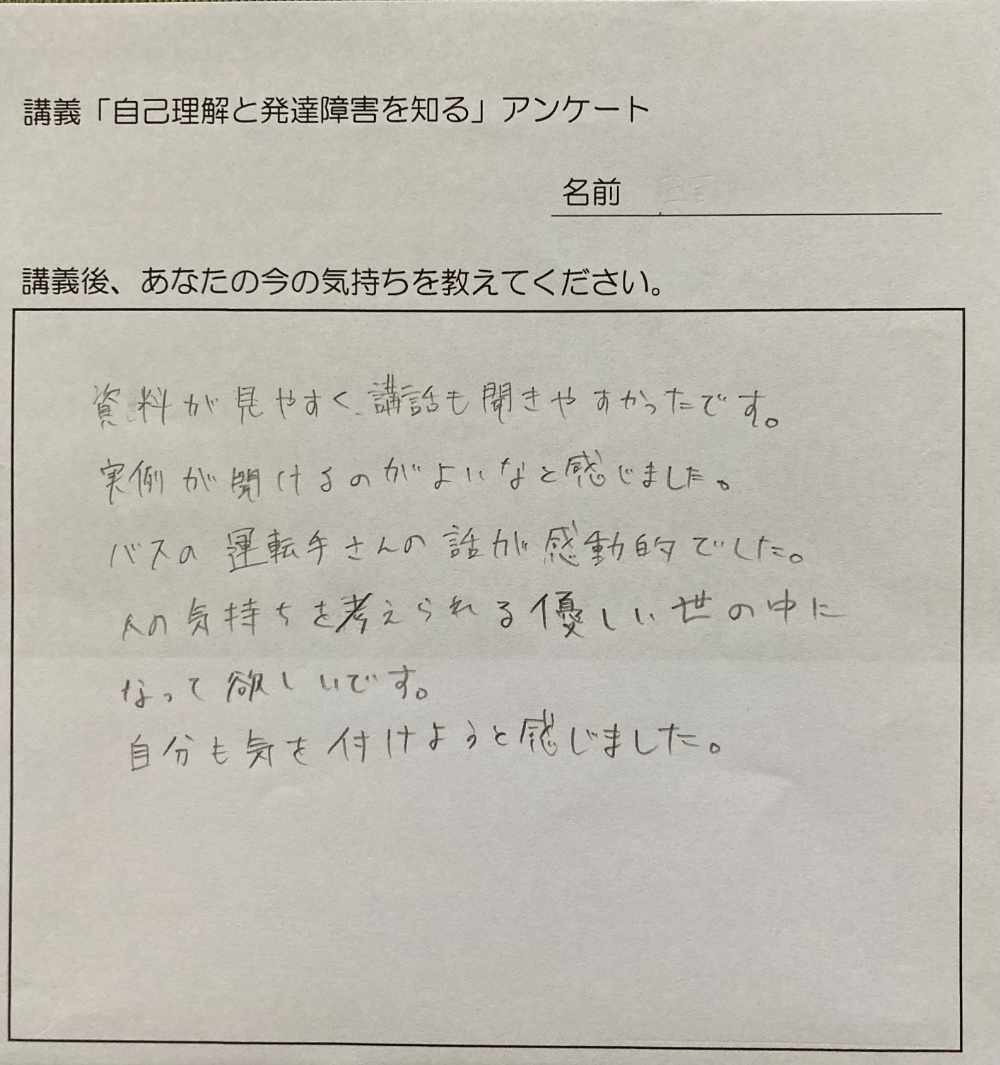 講義「自己理解と発達障害を知る」アンケート
名前
講義後、あなたの今の気持ちを教えてください。
資料が見やすく講話も聞きやすかったです。
実例が聞けるのがよいなと感じました。
バスの運転手さんの話が感動的でした。
人の気持ちを考えられる優しい世の中に
なって欲しいです。
自分も気を付けようと感じました。